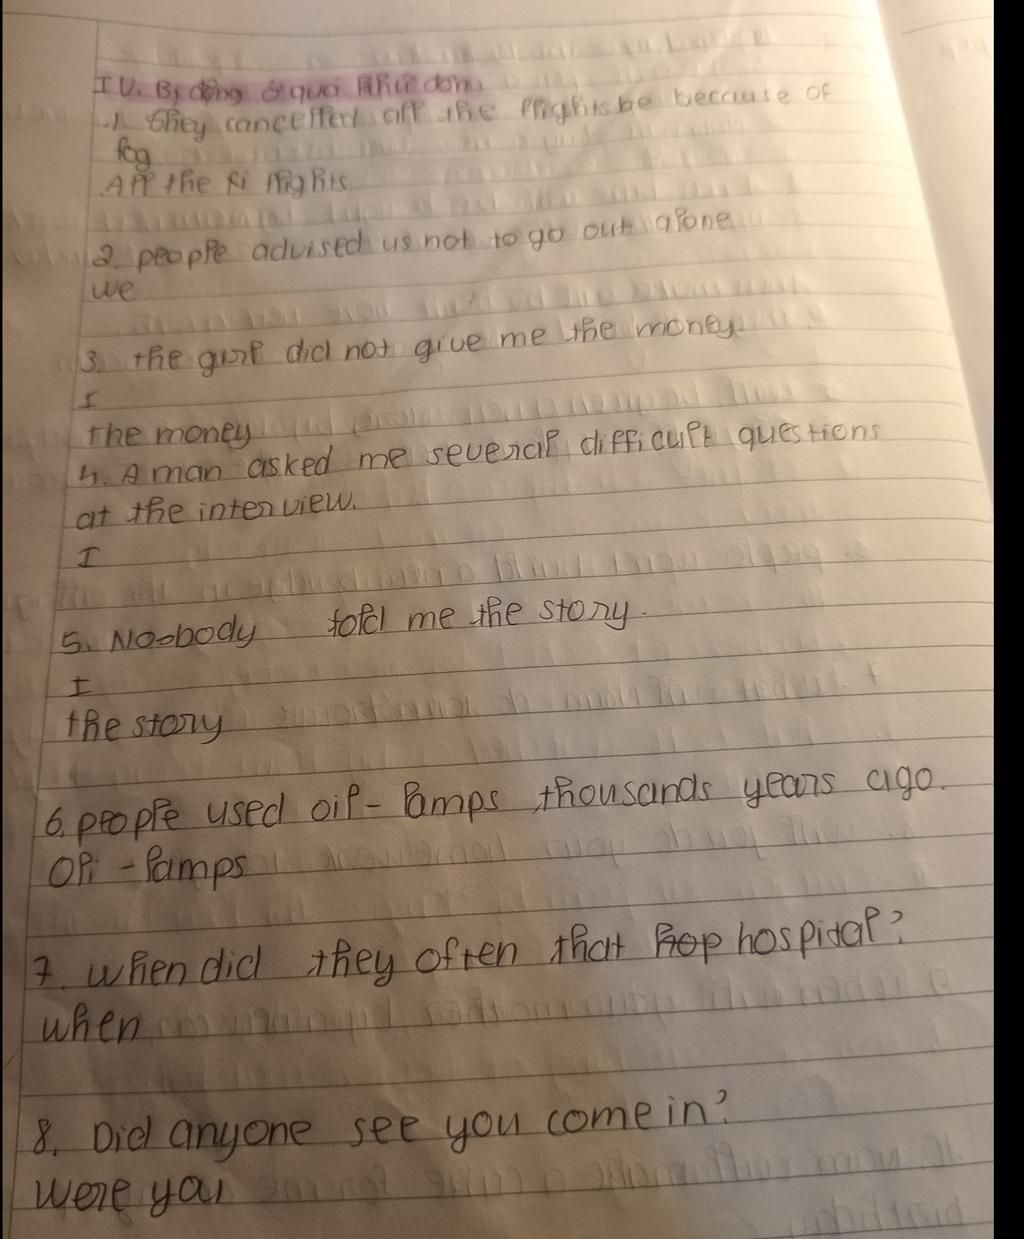 IV. Bị động ở quá khứ đơn
1. They cancelled all the flights be because of
fog
All the fi flights
2. people advised us not to go out alone
we
3. the girl did not give me the money.
I
The money
4. A man asked me several difficult questions
at the interview.
I
5. Noobody told me the story.
I
the story
6. people used oil-lamps thousands years ago.
Oli-lamps
7. when did they often that hop hospital?
when
8. Did anyone see you come in?
were you